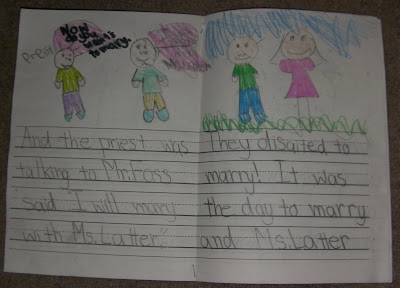 Now
do you
want
to marry.
Priest
And the priest was
talking to Mr.Foss
said I will mary
with Ms.Latter."
They disaited to
marry! It was
the day to marry
and Ms.Latter